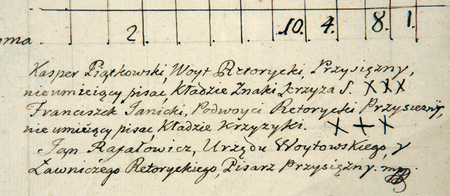 oma 2. 10. 4. 8. 1.
Kasper Piątkowski, Woyt Retorycki, Przysiężny,
nie umieiący pisać kładzie Znaki Krzyża S. XXX
Franciszek Janicki, Podwoyci Retorycki Przysiężny,
nie umieiący pisać kładzie Krzyżyki. X + X
Jan Rafałowicz, Urzędu Woytowskiego, y
Ławniczego Retoryckiego, Pisarz Przysiężny. mp